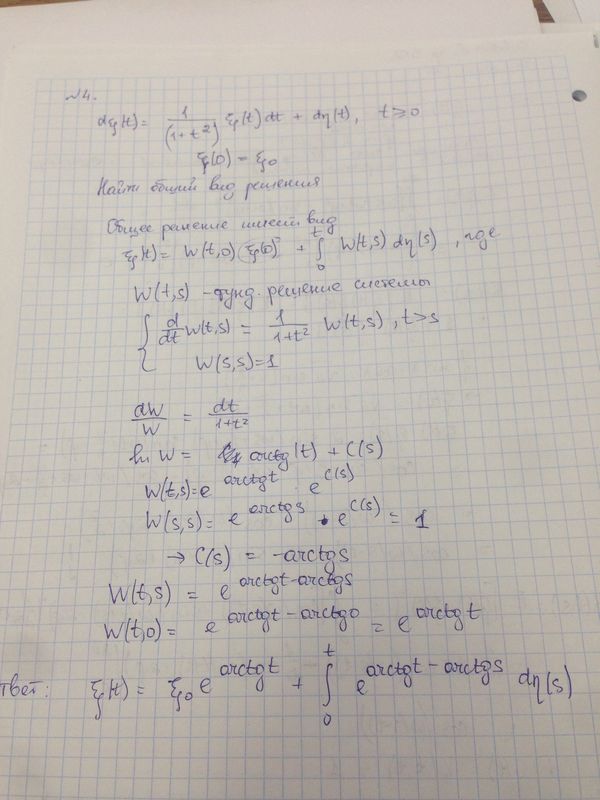 №4.
dξ(t) = 1/(1+t²) ξ(t)dt + dη(t), t ≥ 0
ξ(0) = ξ₀
Найти общий вид решения
Общее решение имеет вид
ξ(t) = W(t,0) ξ(0) + ∫₀ᵗ W(t,s) dη(s), где
W(t,s) - фунд. решение системы
{ d/dt W(t,s) = 1/(1+t²) W(t,s), t>s
W(s,s)=1
dW/W = dt/(1+t²)
ln W = arctg(t) + C(s)
W(t,s) = e^(arctgt) · e^(C(s))
W(s,s) = e^(arctgs) · e^(C(s)) = 1
→ C(s) = -arctgs
W(t,s) = e^(arctgt-arctgs)
W(t,0) = e^(arctgt-arctg0) = e^(arctgt)
твет: ξ(t) = ξ₀ e^(arctgt) + ∫₀ᵗ e^(arctgt-arctgs) dη(s)